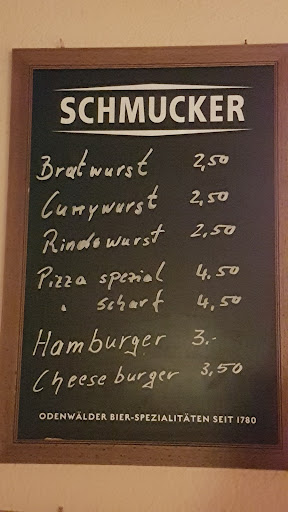 SCHMUCKER
Bratwurst 2,50
Currywurst 2,50
Rindswurst 2,50
Pizza spezial 4.50
" scharf 4,50
Hamburger 3.-
Cheeseburger 3,50
ODENWÄLDER BIER-SPEZIALITÄTEN SEIT 1780